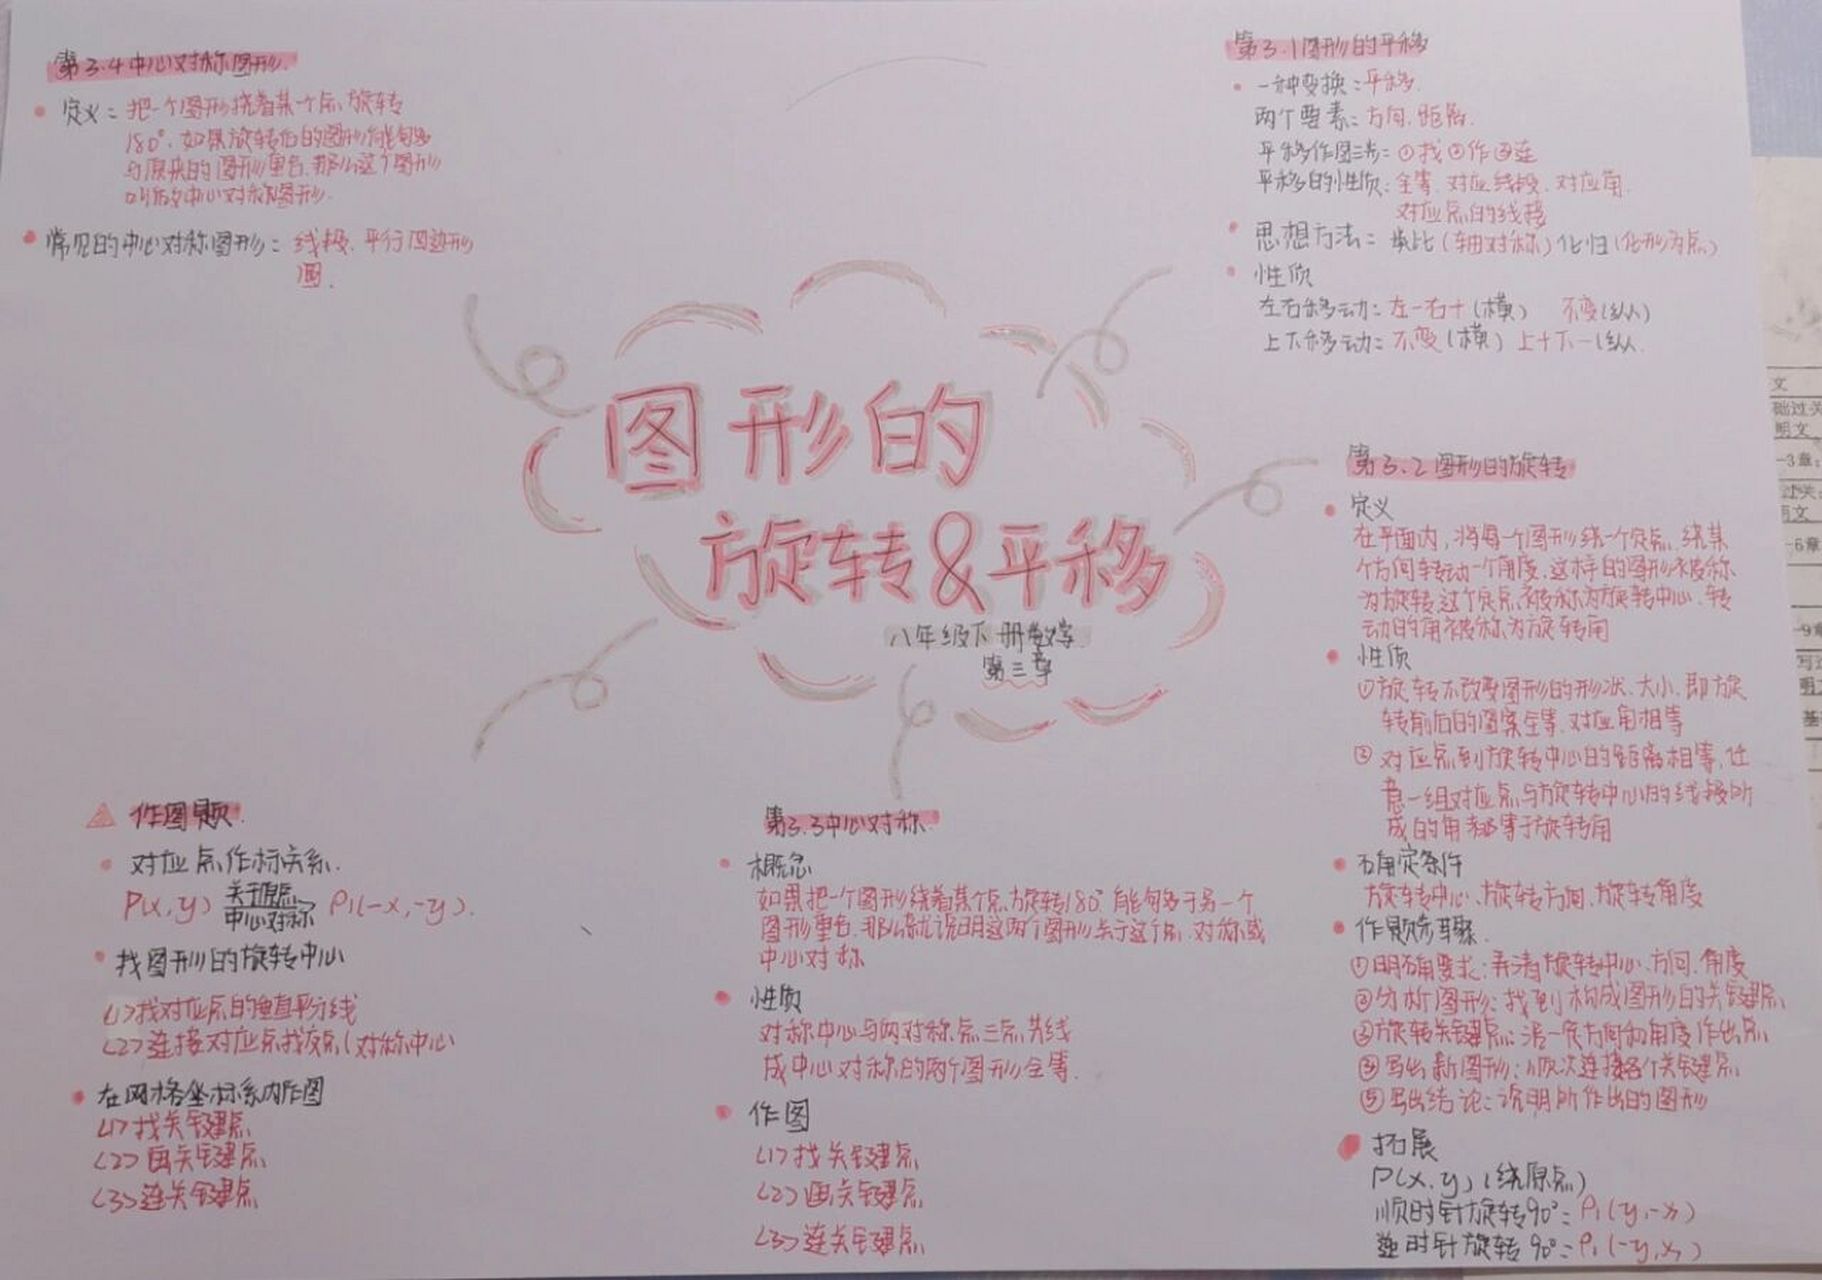 第3.4中心对称图形
定义：把一个图形绕着某一个点旋转
180°，如果旋转后的图形能够
与原来的图形重合，那么这个图形
叫做中心对称图形.
常见的中心对称图形：线段、平行四边形
圆.
第3.1图形的平移
一种变换：平移.
两个要素：方向、距离.
平移作图三步：①找②作③连
平移的性质：全等、对应线段、对应角.
对应点的线段
思想方法：类比（轴对称）化归（化形为点）
性质
左右移动：左-右+（横） 不变（纵）
上下移动：不变（横）上+下-（纵
图形的
旋转&平移
八年级下册数学
第三章
第3.2图形的旋转
定义
在平面内，将每一个图形绕一个定点，绕某
个方向转动一个角度，这样的图形被称
为旋转，这个定点被称为旋转中心，转
动的角被称为旋转角
性质
①旋转不改变图形的形状、大小，即旋
转前后的图案全等，对应角相等
②对应点到旋转中心的距离相等，任
意一组对应点与旋转中心的线段所
成的角都等于旋转角
确定条件
旋转中心、旋转方向、旋转角度
作题步骤.
①明确要求：弄清旋转中心、方向、角度
②分析图形：找到构成图形的关键点
③旋转关键点：沿一定方向和角度作出点
④写出新图形：顺次连接各个关键点
⑤写出结论：说明所作出的图形
拓展
P(x，y)（绕原点）
顺时针旋转90°：P₁(y,-x)
逆时针旋转90°：P₁(-y,x)
作图题.
对应点作标关系.
P(x，y) 关于原点 中心对称 P₁(-x,-y).
找图形的旋转中心
<1>找对应点的垂直平分线
<2>连接对应点找交点（对称中心
在网格坐标系内作图
<1>找关键点
<2>画关键点
<3>连关键点
第3.3中心对称.
概念
如果把一个图形绕着某个点旋转180°能够与另一个
图形重合，那么就说明这两个图形关于这个点对称或
中心对称
性质
对称中心与两对称点三点共线
成中心对称的两个图形全等.
作图
<1>找关键点
<2>画关键点
<3>连关键点
文
础过关
明文
-3章：
过关：
-6章
-9章